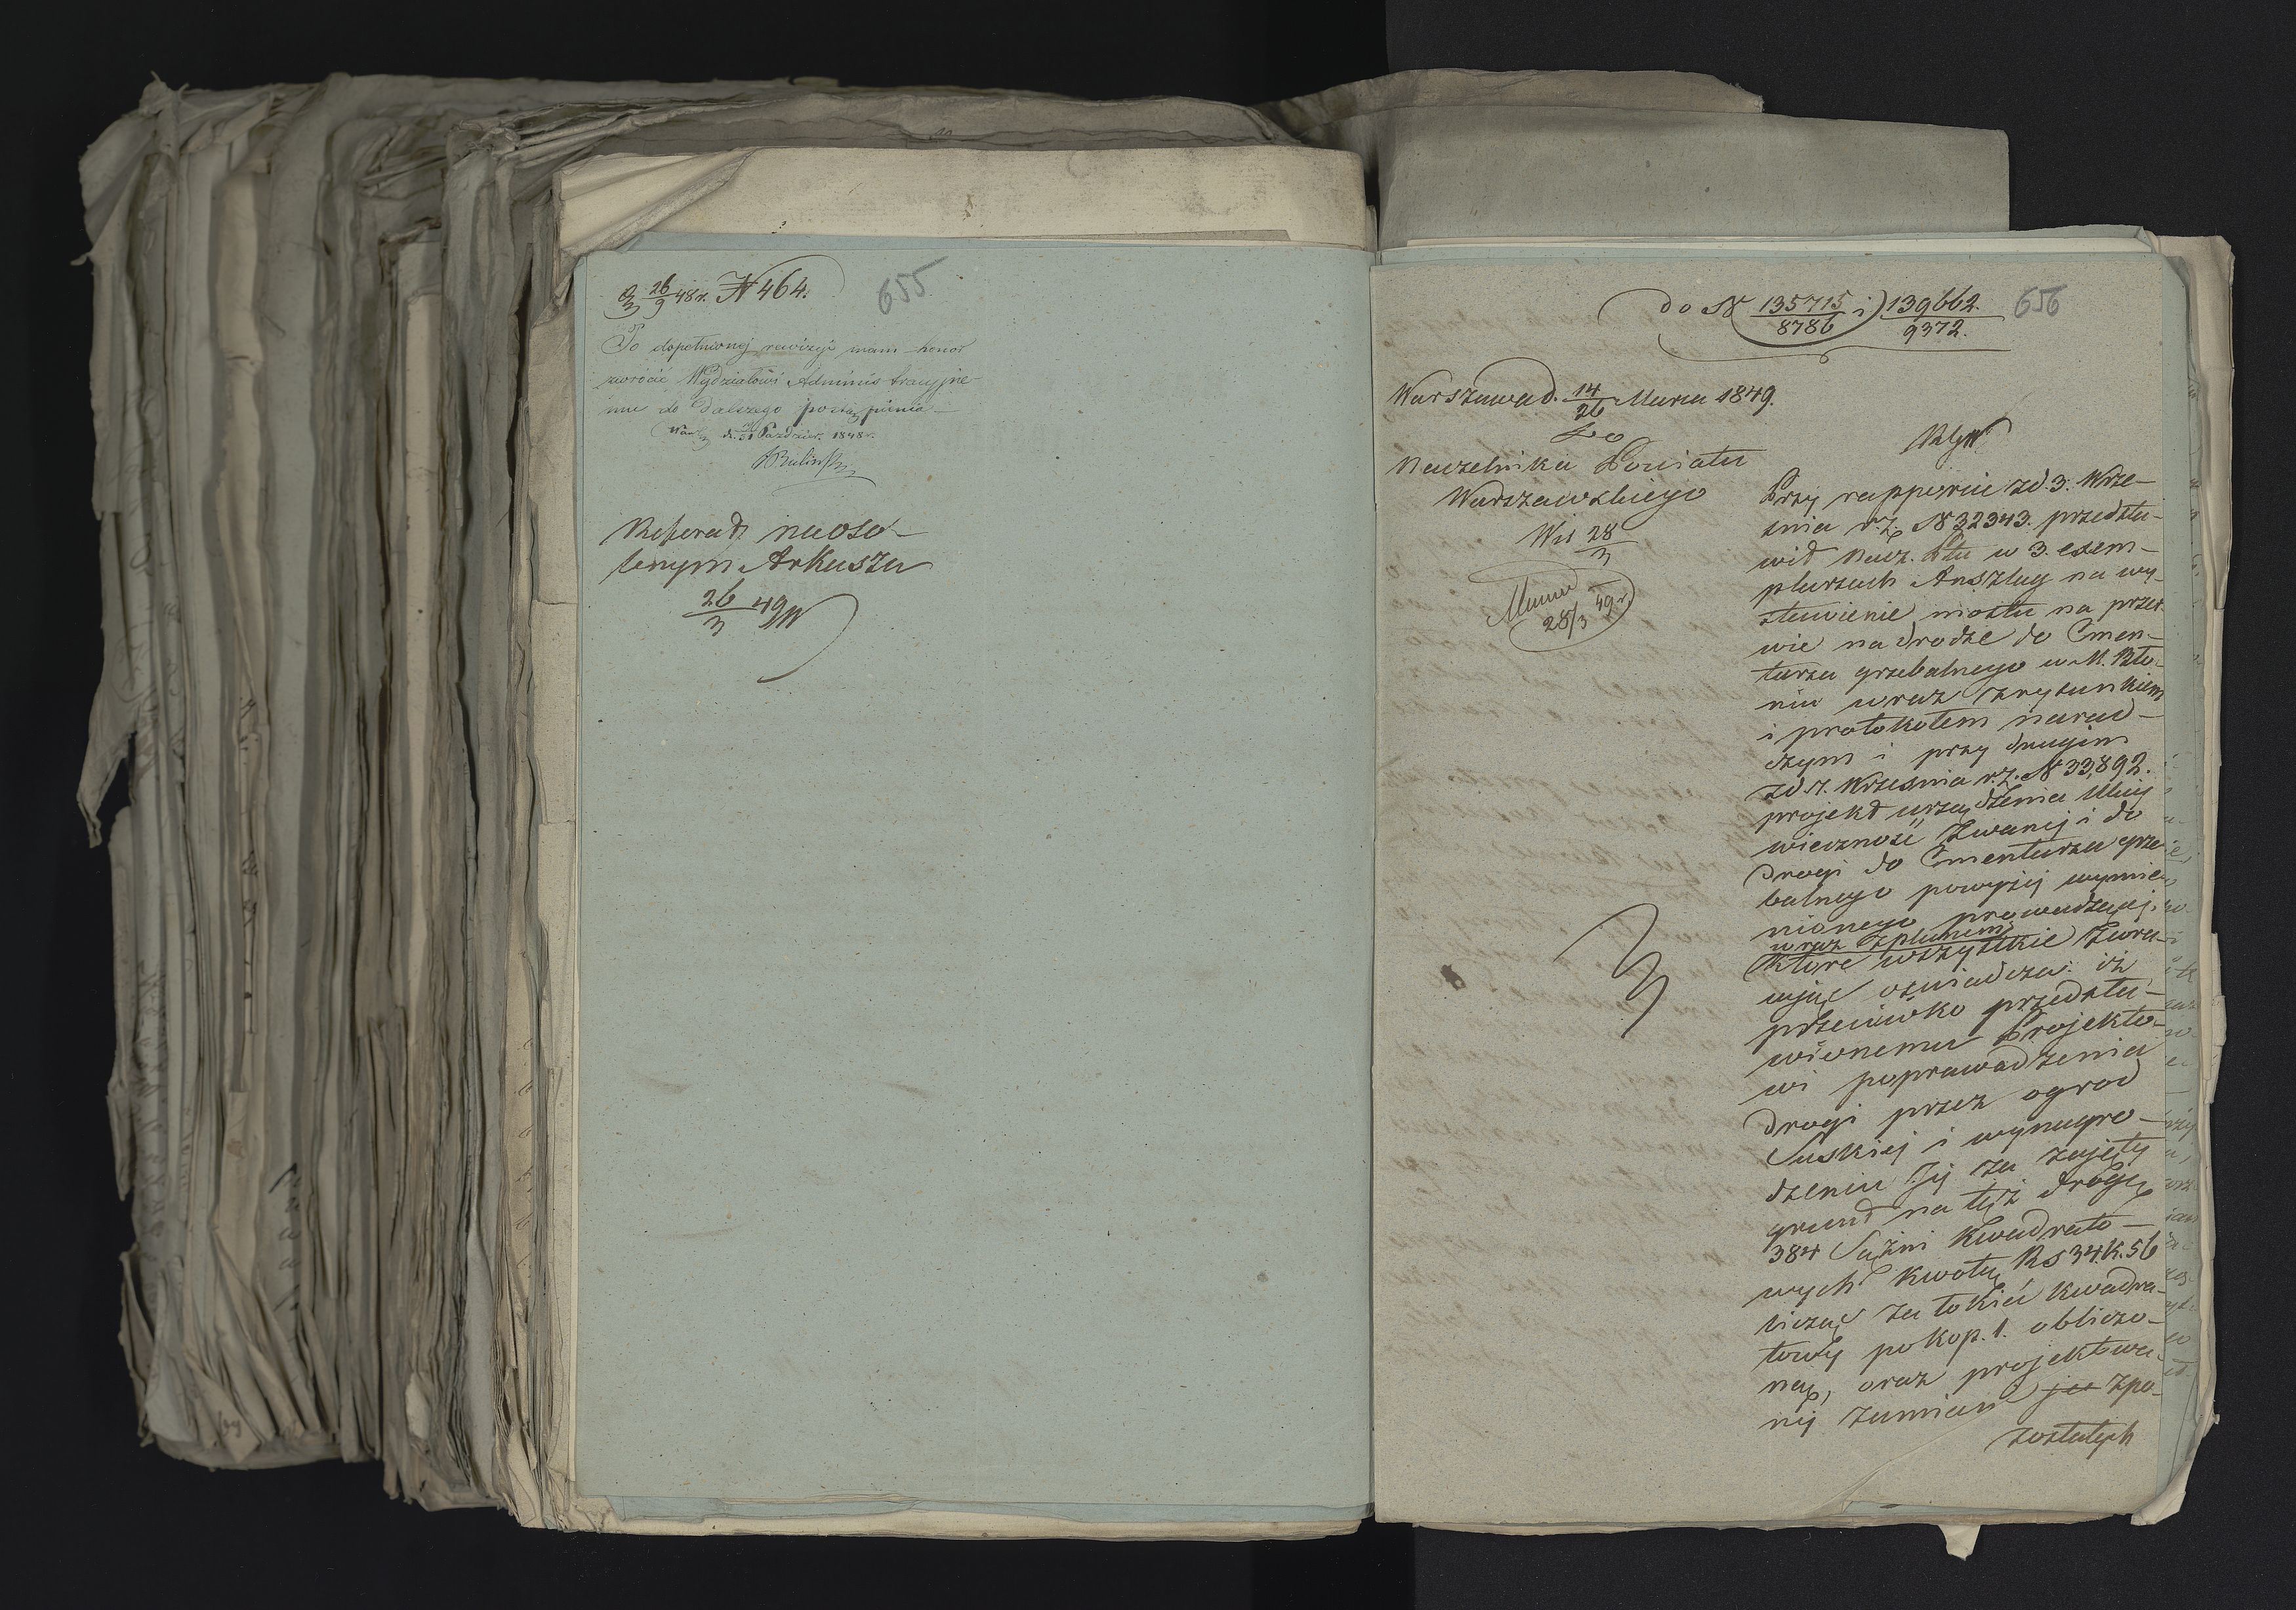 26/9 48r. N 464.
655
Po dopełnionej rewizyi mam honor
zwrócić Wydziałowi Administracyjne-
mu do dalszego postąpienia
Paździer. 1848 r.
Referat na oso-
bnym Arkuszu
26/3 49
do N 135715/8786 i 139662./9372.
656
Warszawa d. 14/26 Marca 1849.
Do
Naczelnika Powiatu
Warszawskiego
28/3
28/3 49 r.
Przy rapporcie z d. 3. Wrze-
śnia r. z. N 32343. przedsta-
wił Nacz. Ptu w 3. exem-
plarzach Anszlag na wy-
stawienie mostu na przer-
wie na drodze do Cmen-
tarza grzebalnego w M. Bło-
niu wraz z rysunkiem
i protokołem narad-
czym i przy drugim
z d. 7. Września r. z. N 33,892.
projekt urządzenia Ulicy
wieczność zwanej i do
drogi do Cmentarza grze-
balnego powyżej wymie-
nionego prowadzącej,
wraz z planem
które wszystkie zwra-
cając oświadcza: iż
przeciwko przedsta-
wionemu Projekto-
wi poprowadzenia
drogi przez ogród
Suskiej i wynagro-
dzeniu Jej za zajęty
grunt na tęż drogę
384 Sążni Kwadrato-
wych kwotą Rs 34 k. 56
licząc za łokieć kwadra-
towy po kop. 1. obliczo-
ną, oraz projektowa-
nej zamian je z po-
zostałych